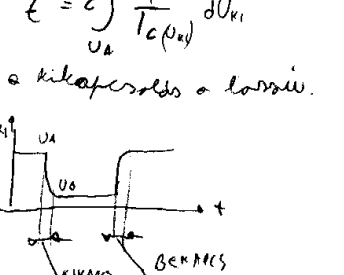 t = c ∫ 1/Ic(Uki) dUki
UA
a kikapcsolás a lassú.
UA
UB
t
KIKAPCS
BEKAPCS